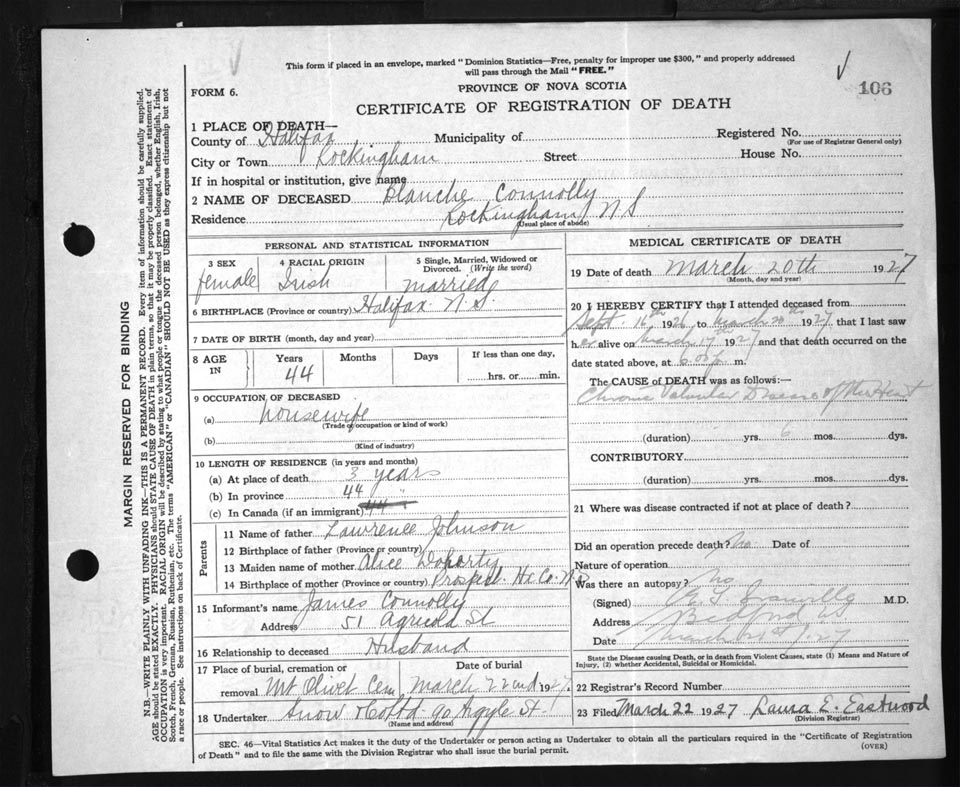 This form if placed in an envelope, marked "Dominion Statistics—Free, penalty for improper use $300," and properly addressed
will pass through the Mail "FREE."
FORM 6.
PROVINCE OF NOVA SCOTIA
106
CERTIFICATE OF REGISTRATION OF DEATH
1 PLACE OF DEATH—
County of Halifax Municipality of Registered No.
(For use of Registrar General only)
City or Town Rockingham Street House No.
If in hospital or institution, give name
2 NAME OF DECEASED Blanche Connolly
Residence Rockingham N S
(Usual place of abode)
PERSONAL AND STATISTICAL INFORMATION
3 SEX 4 RACIAL ORIGIN 5 Single, Married, Widowed or
Divorced. (Write the word)
female Irish married
6 BIRTHPLACE (Province or country) Halifax N.S.
7 DATE OF BIRTH (month, day and year)
8 AGE IN Years Months Days If less than one day,
44 hrs. or min.
9 OCCUPATION OF DECEASED
(a) housewife
(Trade or occupation or kind of work)
(b)
(Kind of industry)
10 LENGTH OF RESIDENCE (in years and months)
(a) At place of death 3 years
(b) In province 44 "
(c) In Canada (if an immigrant) 44
Parents
11 Name of father Lawrence Johnson
12 Birthplace of father (Province or country)
13 Maiden name of mother Alice Doharty
14 Birthplace of mother (Province or country) Prospect Hx Co. N.S
15 Informant's name James Connolly
Address 51 Agricola St
16 Relationship to deceased Husband
17 Place of burial, cremation or Date of burial
removal Mt Olivet Cem March 22nd 1927.
18 Undertaker Snow & Co Ltd 90 Argyle St
(Name and address)
MEDICAL CERTIFICATE OF DEATH
19 Date of death March 20th 1927
(Month, day and year)
20 I HEREBY CERTIFY that I attended deceased from
Sept. 16th 1926 to March 20th 1927 that I last saw
her alive on March 17th 1927 and that death occurred on the
date stated above, at m.
The CAUSE of DEATH was as follows:—
Chronic Valvular Disease of the Heart
(duration) yrs. 6 mos. dys.
CONTRIBUTORY
(duration) yrs. mos. dys.
21 Where was disease contracted if not at place of death?
Did an operation precede death? No Date of
Nature of operation
Was there an autopsy? no
(Signed) M.D.
Address Bedford
Date
State the Disease causing Death, or in death from Violent Causes, state (1) Means and Nature of
Injury, (2) whether Accidental, Suicidal or Homicidal.
22 Registrar's Record Number
23 Filed March 22 1927 Laura E. Eastwood
(Division Registrar)
SEC. 46—Vital Statistics Act makes it the duty of the Undertaker or person acting as Undertaker to obtain all the particulars required in the "Certificate of Registration
of Death" and to file the same with the Division Registrar who shall issue the burial permit.
(OVER)
MARGIN RESERVED FOR BINDING
N.B.—WRITE PLAINLY WITH UNFADING INK—THIS IS A PERMANENT RECORD. Every item of information should be carefully supplied.
AGE should be stated EXACTLY. PHYSICIANS should STATE CAUSE OF DEATH in plain terms, so that it may be properly classified. Exact statement of
OCCUPATION is very important. RACIAL ORIGIN will be described by stating to what people or tongue the deceased person belonged, whether English, Irish,
Scotch, French, German, Russian, Ruthenian, etc. The terms "AMERICAN" or "CANADIAN" SHOULD NOT BE USED as they express citizenship but not
a race or people. See instructions on back of Certificate.